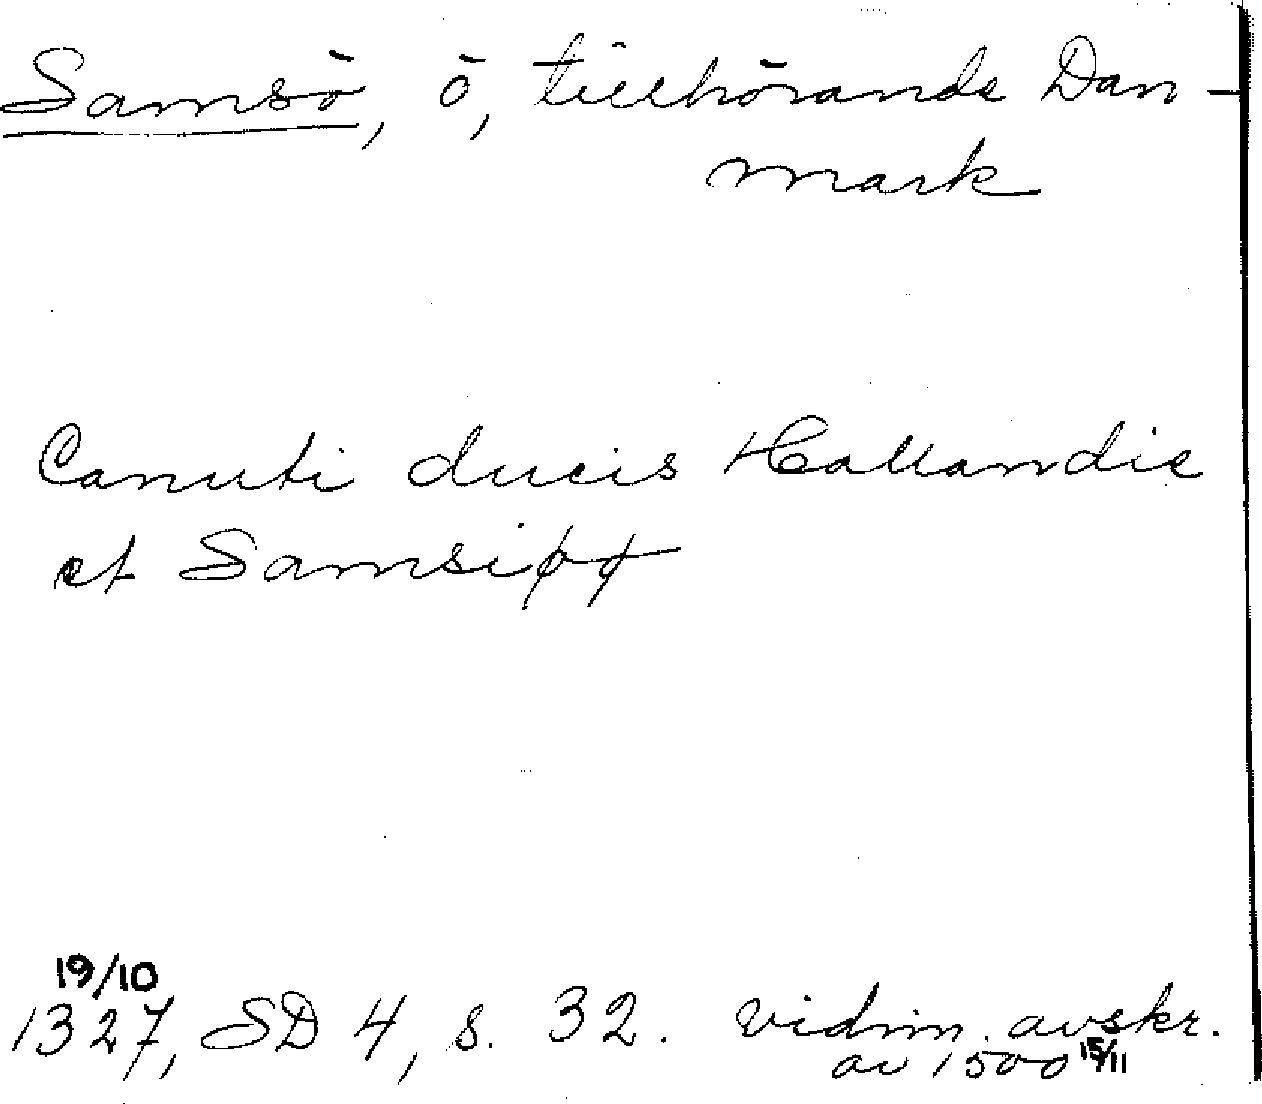 Samsö, ö, tillhörande Dan-
mark
Canuti ducis Hallandie
et Samsiøø
19/10
1327, SD 4, s. 32. vidim. avskr.
av 1500 15/11